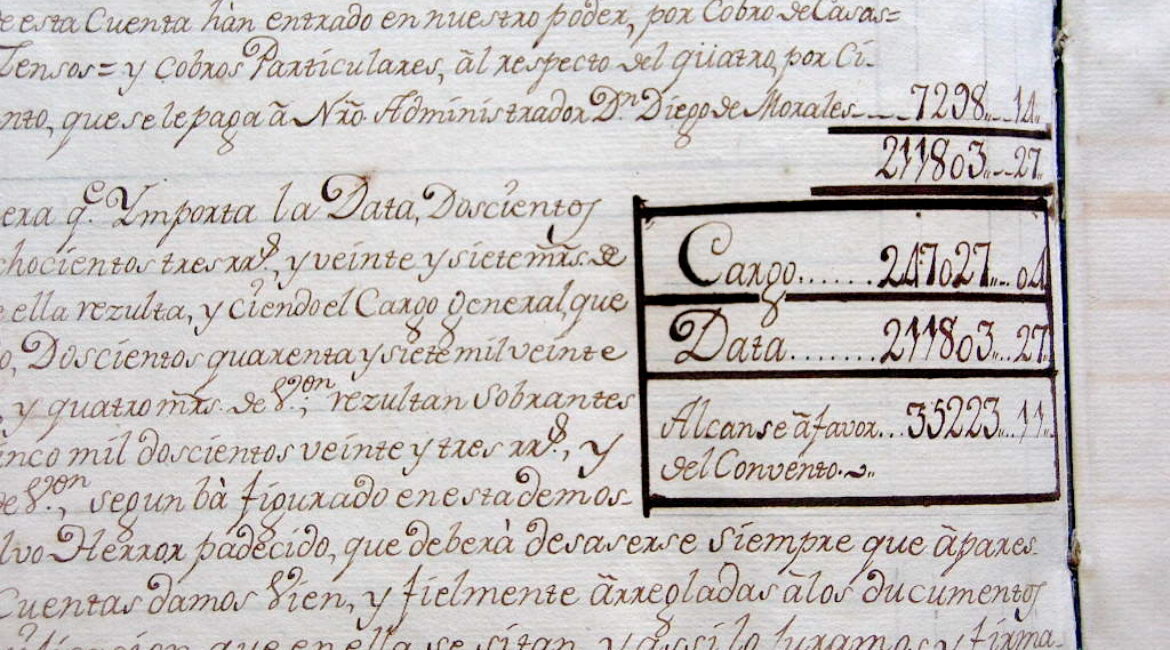 e esta Cuenta hàn entrado en nuestro poder, por Cobro de Casas=
Tensos= y Cobros Particulares, ãl respecto del quatro, por Ci-
nto, que se le paga ã Nr̃o Administrador Dn. Diego de Morales 7298..14..
211803..27..
era qe. Ymporta la Data, Doscientos
chocientos tres rrs., y veinte y siete mr̃s. de
e ella rezulta, y ciendo el Cargo General, que
o, Doscientos quarenta y siete mil veinte
, y quatro mr̃s. de Von.; rezultan Sobrantes
inco mil doscientos veinte y tres rrs., y
de Von., segun bà figurado en esta demos-
Cargo...... 247027.. 04
Data........ 211803.. 27
Alcanse ã favor... 35223.. 11..
del Convento..
lvo Herror padecido, que deberà desaserse siempre que ãpares-
Cuentas damos Vien, y fielmente ãrregladas ãlos ducumentos
que en ella se sitan, y assi lo Juramos y firma-